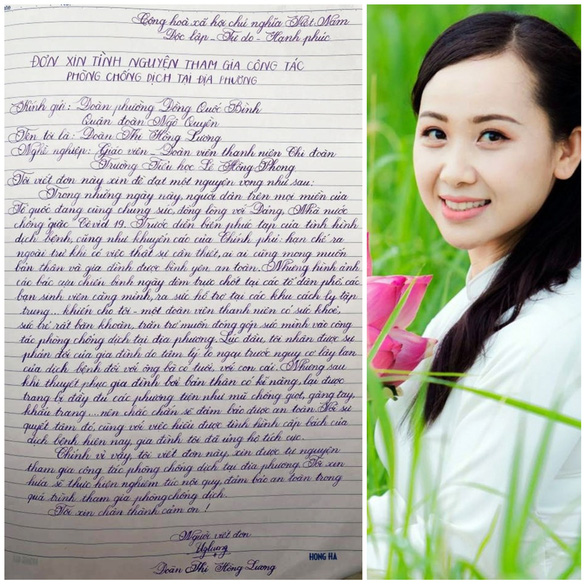 Cộng hoà xã hội chủ nghĩa Việt Nam
Độc lập - Tự do - Hạnh phúc
ĐƠN XIN TÌNH NGUYỆN THAM GIA CÔNG TÁC
PHÒNG CHỐNG DỊCH TẠI ĐỊA PHƯƠNG
Kính gửi: Đoàn phường Đồng Quốc Bình
Quận đoàn Ngô Quyền
Tên tôi là: Đoàn Thị Hồng Lương
Nghề nghiệp: Giáo viên - Đoàn viên thanh niên Chi đoàn
Trường Tiểu học Lê Hồng Phong
Tôi viết đơn này xin đề đạt một nguyện vọng như sau:
Trong những ngày này, người dân trên mọi miền của
Tổ quốc đang cùng chung sức, đồng lòng với Đảng, Nhà nước
chống giặc Covid 19. Trước diễn biến phức tạp của tình hình
dịch bệnh, cũng như khuyến cáo của Chính phủ: hạn chế ra
ngoài trừ khi có việc thật sự cần thiết, ai ai cũng mong muốn
bản thân và gia đình được bình yên, an toàn. Nhưng hình ảnh
các bác cựu chiến binh ngày đêm trực chốt tại các tổ dân phố, các
bạn sinh viên căng mình, ra sức hỗ trợ tại các khu cách ly tập
trung... khiến cho tôi - một đoàn viên thanh niên có sức khoẻ,
sức trẻ rất băn khoăn, trăn trở muốn đóng góp sức mình vào công
tác phòng chống dịch tại địa phương. Lúc đầu, tôi nhận được sự
phản đối của gia đình do tâm lý lo ngại trước nguy cơ lây lan
của dịch bệnh đối với ông bà có tuổi, với con cái. Nhưng sau
khi thuyết phục gia đình bởi bản thân có kĩ năng, lại được
trang bị đầy đủ các phương tiện như mũ chống giọt, găng tay,
khẩu trang... nên chắc chắn sẽ đảm bảo được an toàn. Với sự
quyết tâm đó, cùng với việc hiểu được tình hình cấp bách của
dịch bệnh hiện nay, gia đình tôi đã ủng hộ tích cực.
Chính vì vậy, tôi viết đơn này, xin được tự nguyện
tham gia công tác phòng chống dịch tại địa phương. Tôi xin
hứa sẽ thực hiện nghiêm túc nội quy, đảm bảo an toàn trong
quá trình tham gia phòng chống dịch.
Tôi xin chân thành cảm ơn!
Người viết đơn
Đoàn Thị Hồng Lương
HONG HA